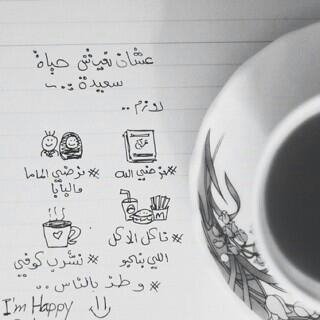 عشان نعيش حياة
سعيدة ..~
لازم ..
#نرضي الله
#نرضي الماما
والبابا
#ناكل الاكل
اللي بنحبو
#نشرب كوفي
#وطز بالناس ..
I'm Happy